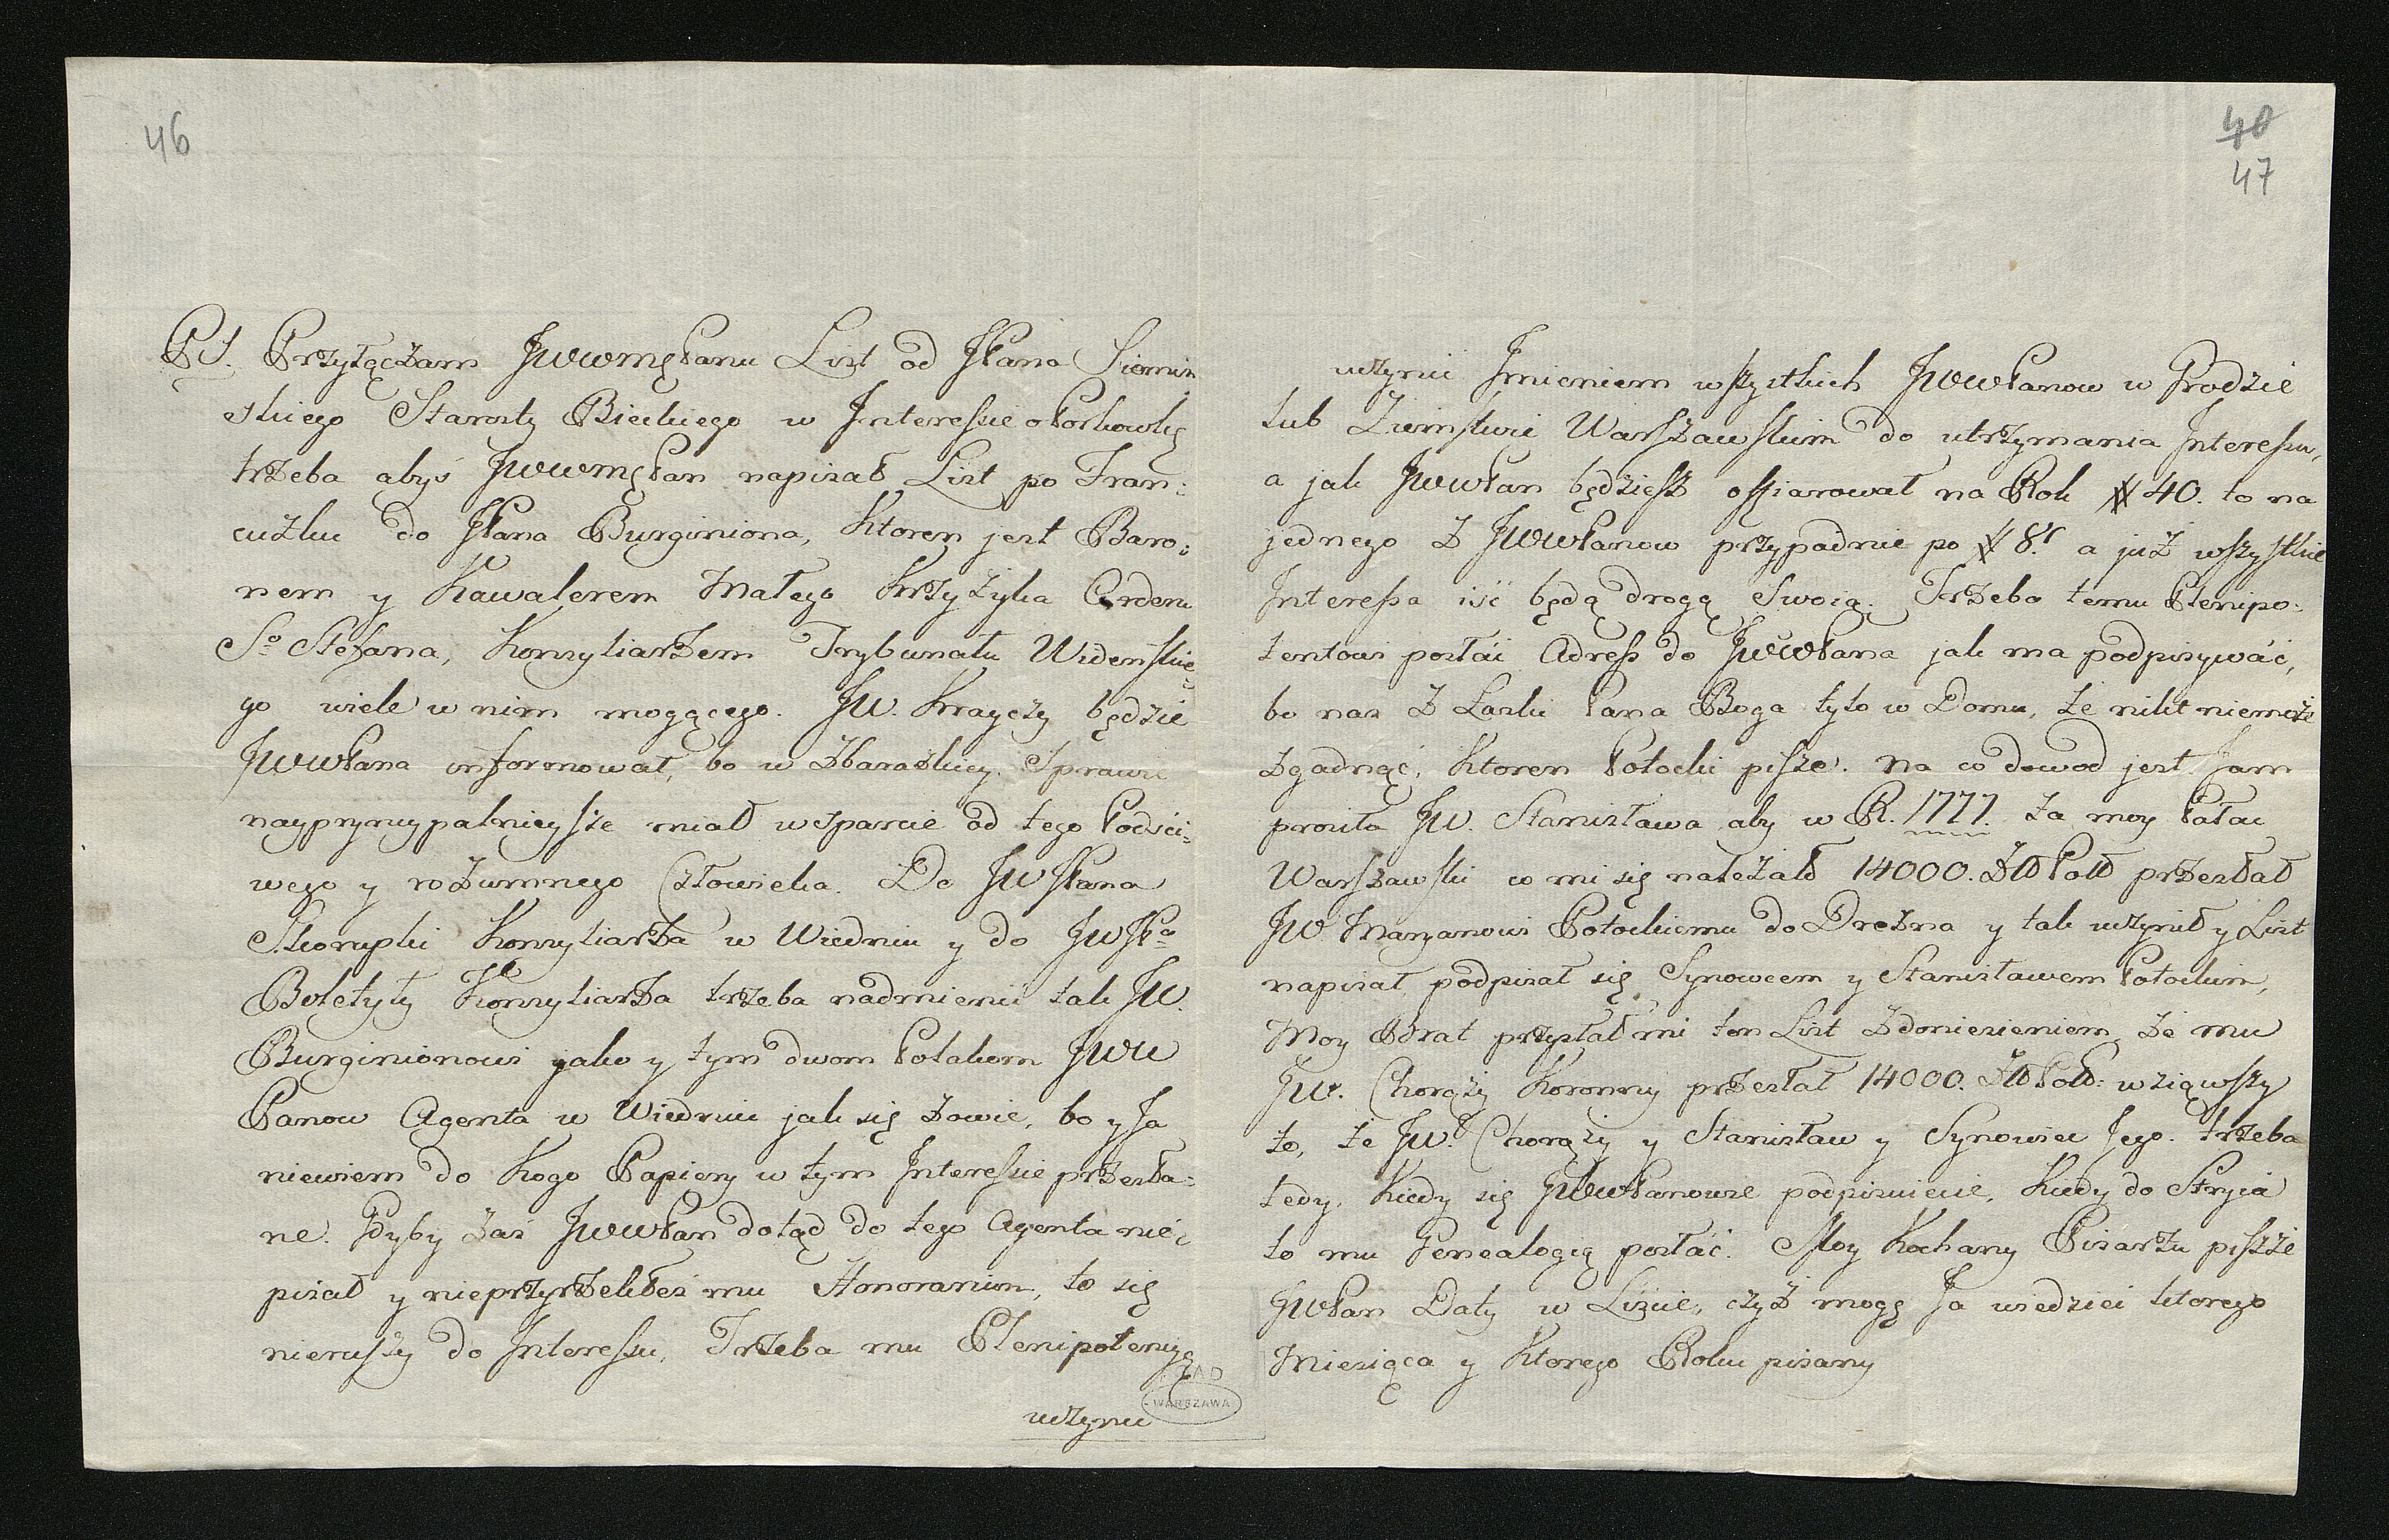 46
PS. Przyłączam JWWMęPanu List od JPana Siemiń
skiego Starosty Bieckiego w Interessie o Porhowkę
trzeba abyś JWWMęPan napisał List po Fran:
cuzku do JPana Burginiona, Ktoren jest Baro:
nem y Kawalerem Małego Krzyżyka Orderu
So Stefana, Konsyliarzem Trybunału Widenskie:
go wiele w nim mogącego. JW. Krayczy będzie
JWWPana informował, bo w Zbarazkiey Sprawie
naypryncypalnieysze miał wsparcie od tego Poćści:
wego y rozumnego Człowieka. Do JW JPana
Skorupki Konsyliarza w Wiedniu y do JWJPa
Boletyły Konsyliarza trzeba nadmienić tak JW.
Burginionowi jako y tym dwom Polakom JWW
Panow Agenta w Wiedniu jak się zowie, bo y Ja
niewiem do Kogo Papiery w tym Interessie przesła:
ne. Gdyby zaś JWWPan dotąd do tego Agenta nie:
pisał y nieprzyrzekłeś mu Honorarium, to się
nieruszy do Interessu, Trzeba mu Plenipotencyę
uczynić
40
47
uczynić Jmieniem wszystkich JWWPanow w Grodzie
lub Ziemstwie Warszawskim do utrzymania Interessu,
a jak JWWPan będziesz offiarował na Rok # 40. to na
jednego z JWWPanow przypadnie po # 8. a już wszystkie
Interessa iść będą drogą Swoią. Trzeba temu Plenipo:
tentowi posłać Adress do JWWPana jak ma podpisywać,
bo nas z Łaski Pana Boga tyło w Domu, że nikt niemoże
zgadnąć, Ktoren Potocki pisze. na co dowod jest. Jam
prosiła JW. Stanisława aby w R. 1777. za moy Pałac
Warszawski co mi się należało 14000. Zł Pol przesłał
JW Maryanowi Potockiemu do Drezna y tak uczynił y List
napisał, podpisał się Synowcem y Stanisławem Potockim,
Moy Brat przysłał mi ten List z doniesieniem, że mu
JW. Chorąży Koronny przesłał 14000. Zł Pol: wziąwszy
to, że JW. Chorąży y Stanisław y Synowiec Jego. trzeba
tedy, Kiedy się JWWPanowie podpisuiecie, Kiedy do Stryia
to mu Genealogią posłać. Moy Kochany Pisarzu piszże
JWPan Daty w Liście, czyż mogę Ja wiedzieć ktorego
Miesiąca y Ktorego Roku pisany
WARSZAWA